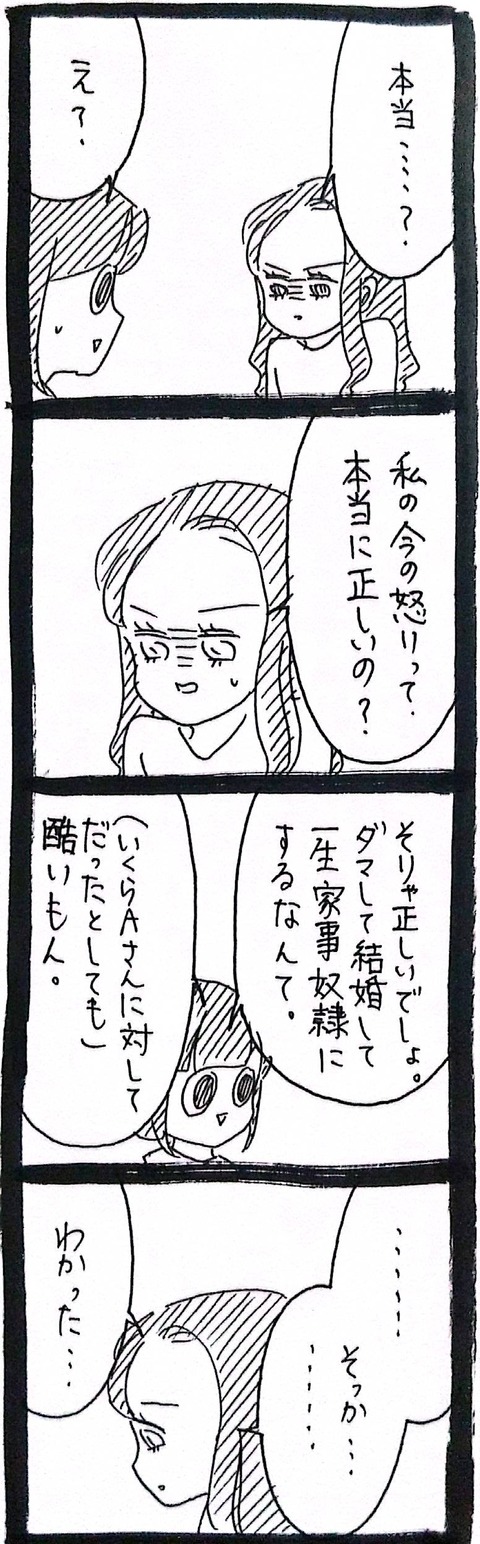 本当……?
え?
私の今の怒りって
本当に正しいの?
そりゃ正しいでしょ。
ダマして結婚して
一生家事奴隷に
するなんて。
(いくらAさんに対して
だったとしても)
酷いもん。
………
そっか…
………
わかった…